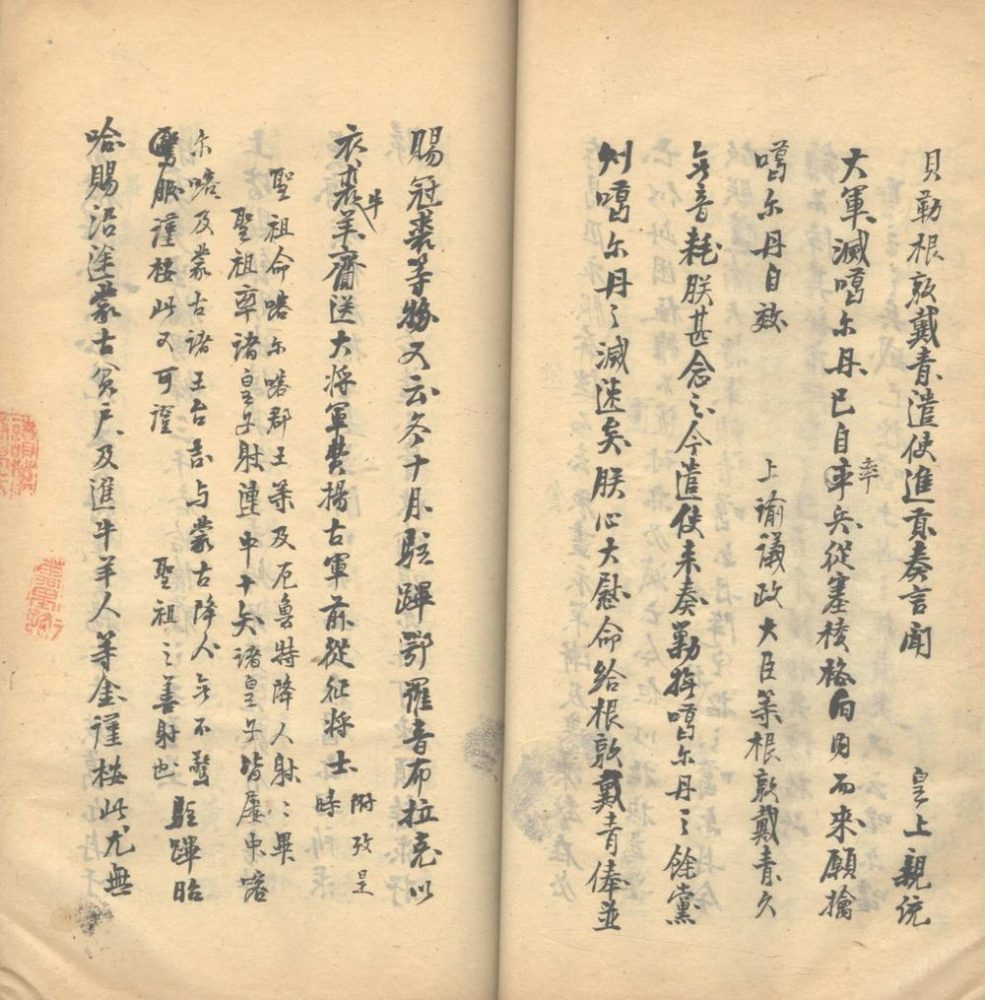 貝勒根敦戴青遣使進貢奏言聞 皇上親統
大軍滅噶尔丹已自率兵從塞棱格 而來願擒
噶尔丹自效 上諭議政大臣等根敦戴青久
無音耗朕甚念之今遣使来奏勦 噶尔丹之餘黨
則噶尔丹之滅迷矣朕心大慰命給根敦戴青俸並
賜冠裘等物又云冬十月駐蹕鄂羅音布拉克以
衣裘牛羊賫送大将軍費揚古軍前從征将士 附攷是時
聖祖命喀尔喀郡王等及厄魯特降人射：畢
聖祖率諸皇子射連中十矢諸皇子皆屢中喀
尔喀及蒙古諸王台吉与蒙古降人無不驚
服謹桉此又可證 聖祖之善射也 駐蹕昭
哈賜沿途蒙古貧戶及進牛羊人等金謹桉此尤無